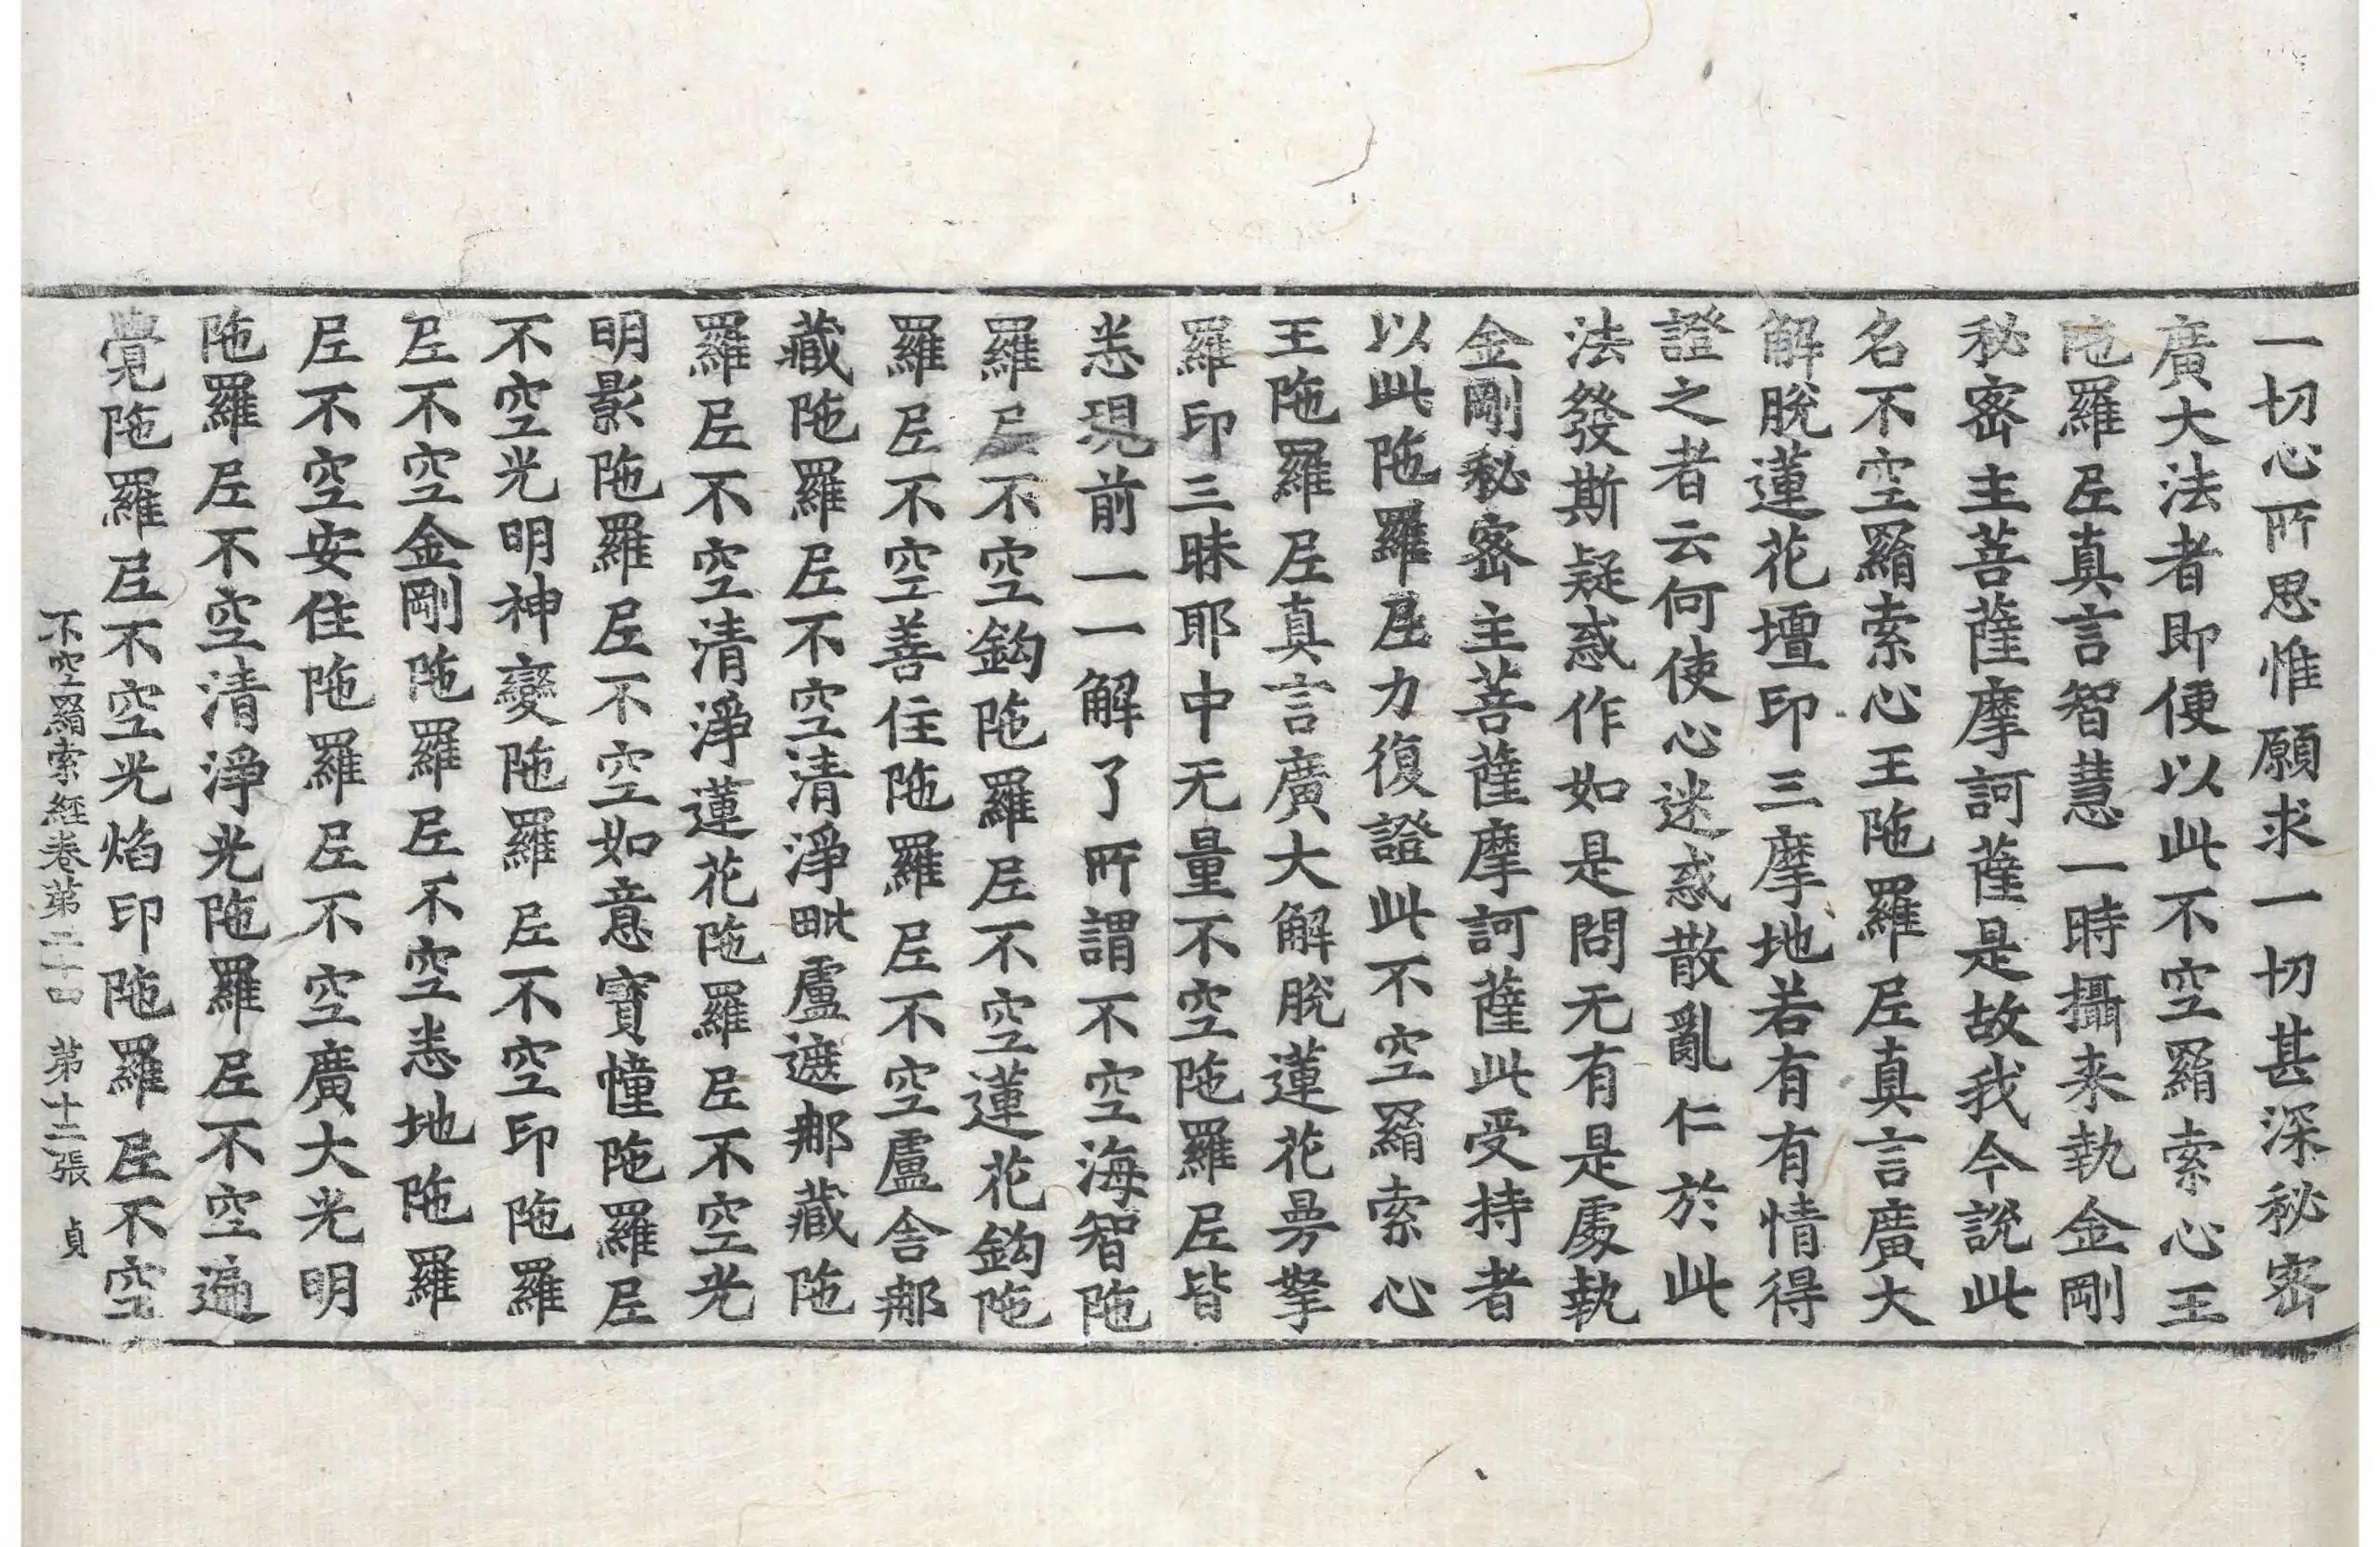 一切心所思惟願求一切甚深秘密
廣大法者即便以此不空羂索心王
陁羅𡰱真言智慧一時攝来執金剛
秘密主菩薩摩訶薩是故我今說此
名不空羂索心王陁羅𡰱真言廣大
解脫蓮花壇印三摩地若有有情得
證之者云何使心迷惑散亂仁於此
法發斯疑惑作如是問无有是處執
金剛秘密主菩薩摩訶薩此受持者
以此陁羅𡰱力復證此不空羂索心
王陁羅𡰱真言廣大解脫蓮花曼拏
羅印三昧耶中无量不空陁羅𡰱皆
悉現前一一解了所謂不空海智陁
羅𡰱不空鈎陁羅𡰱不空蓮花鈎陁
羅𡰱不空善住陁羅𡰱不空盧舍那
藏陁羅𡰱不空清淨毗盧遮那藏陁
羅𡰱不空清淨蓮花陁羅𡰱不空光
明影陁羅𡰱不空如意寶幢陁羅𡰱
不空光明神變陁羅𡰱不空印陁羅
𡰱不空金剛陁羅𡰱不空悉地陁羅
𡰱不空安住陁羅𡰱不空廣大光明
陁羅𡰱不空清淨光陁羅𡰱不空遍
覺陁羅𡰱不空光焰印陁羅𡰱不空
不空羂索經卷第二十四 第十二張 貞